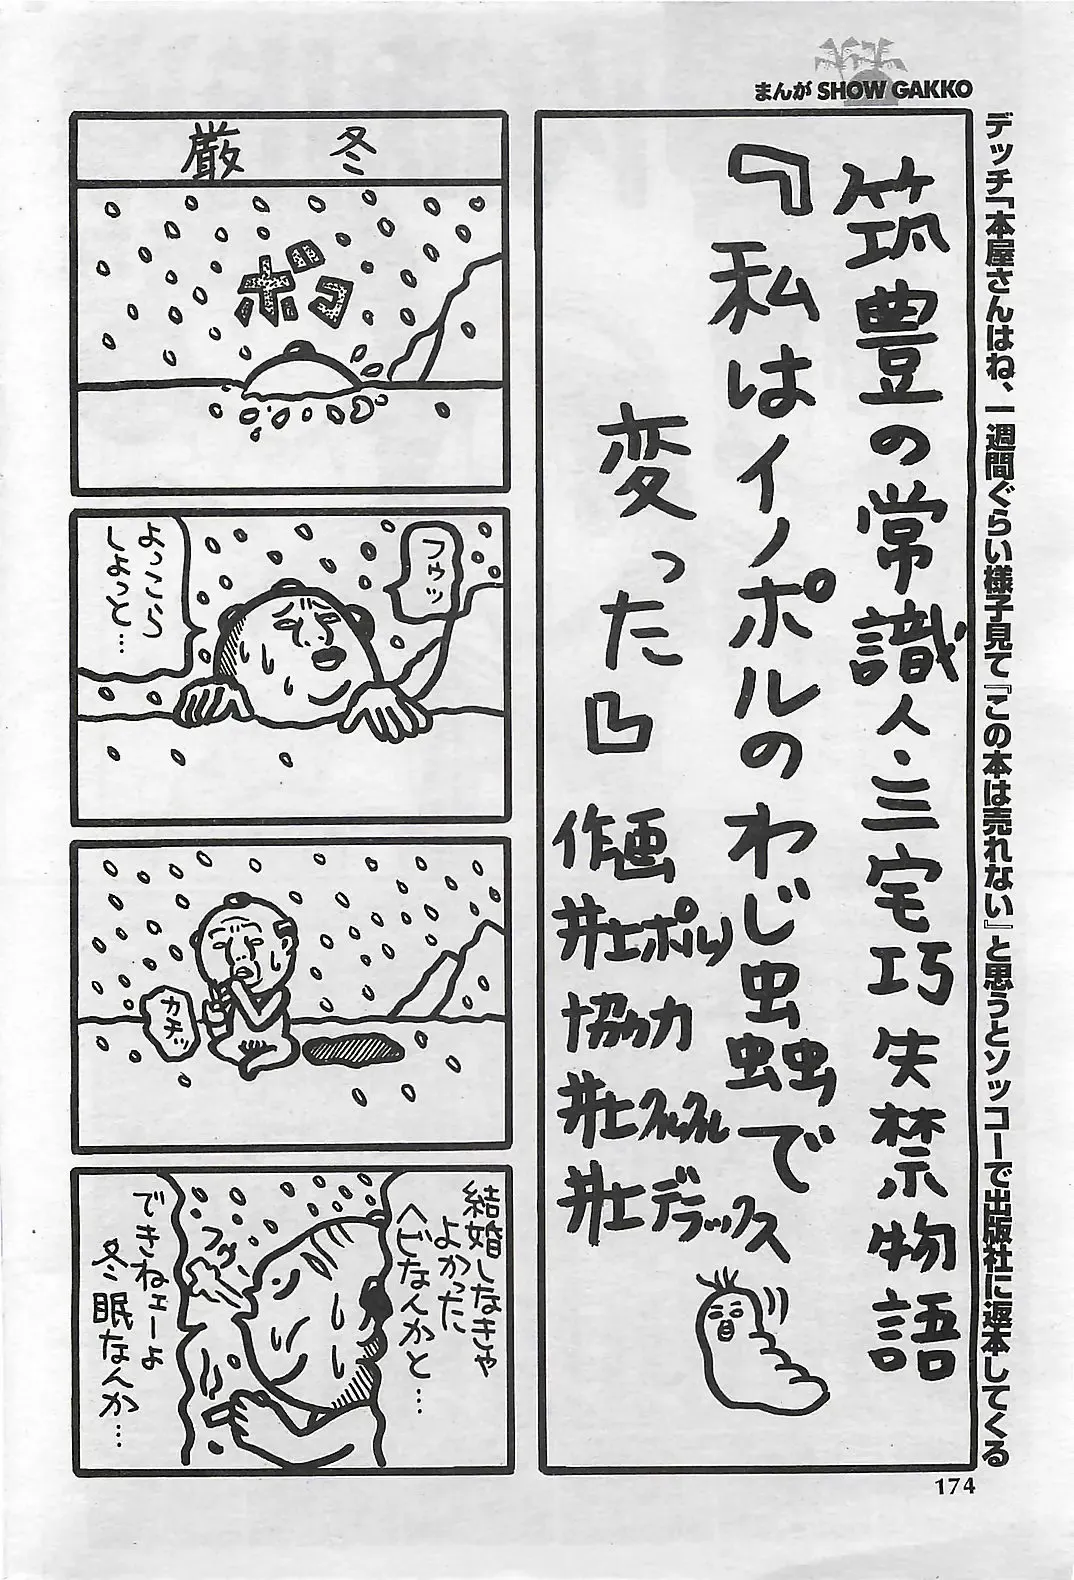 まんが SHOW GAKKO
デッチ「本屋さんはね、一週間ぐらい様子見て『この本は売れない』と思うとソッコーで出版社に返本してくる
筑豊の常識人・三宅巧失禁物語
『私はイノポルのわじ虫蟲で
変った』
作画
井土ポルノ
協力
井土フルフル
井土デラックス
厳冬
ボコ
フゥッ
よっこら
しょっと…
カチッ
結婚しなきゃ
よかった
ヘビなんかと…
フゥ、
できねェーよ
冬眠なんか…
174